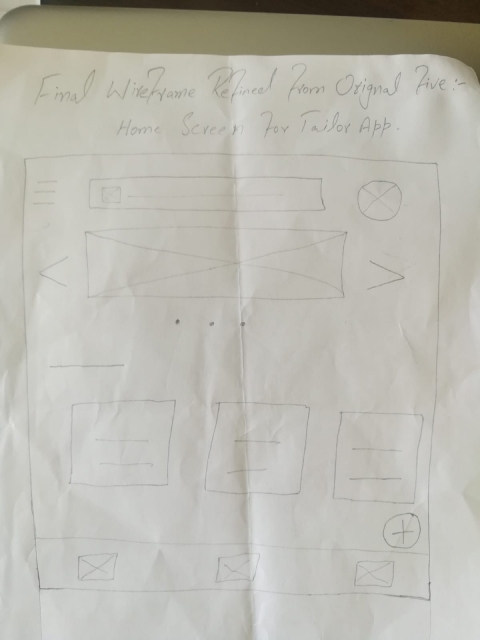 Final Wireframe Refined From Orignal Five:-
Home Screen For Tailor App.